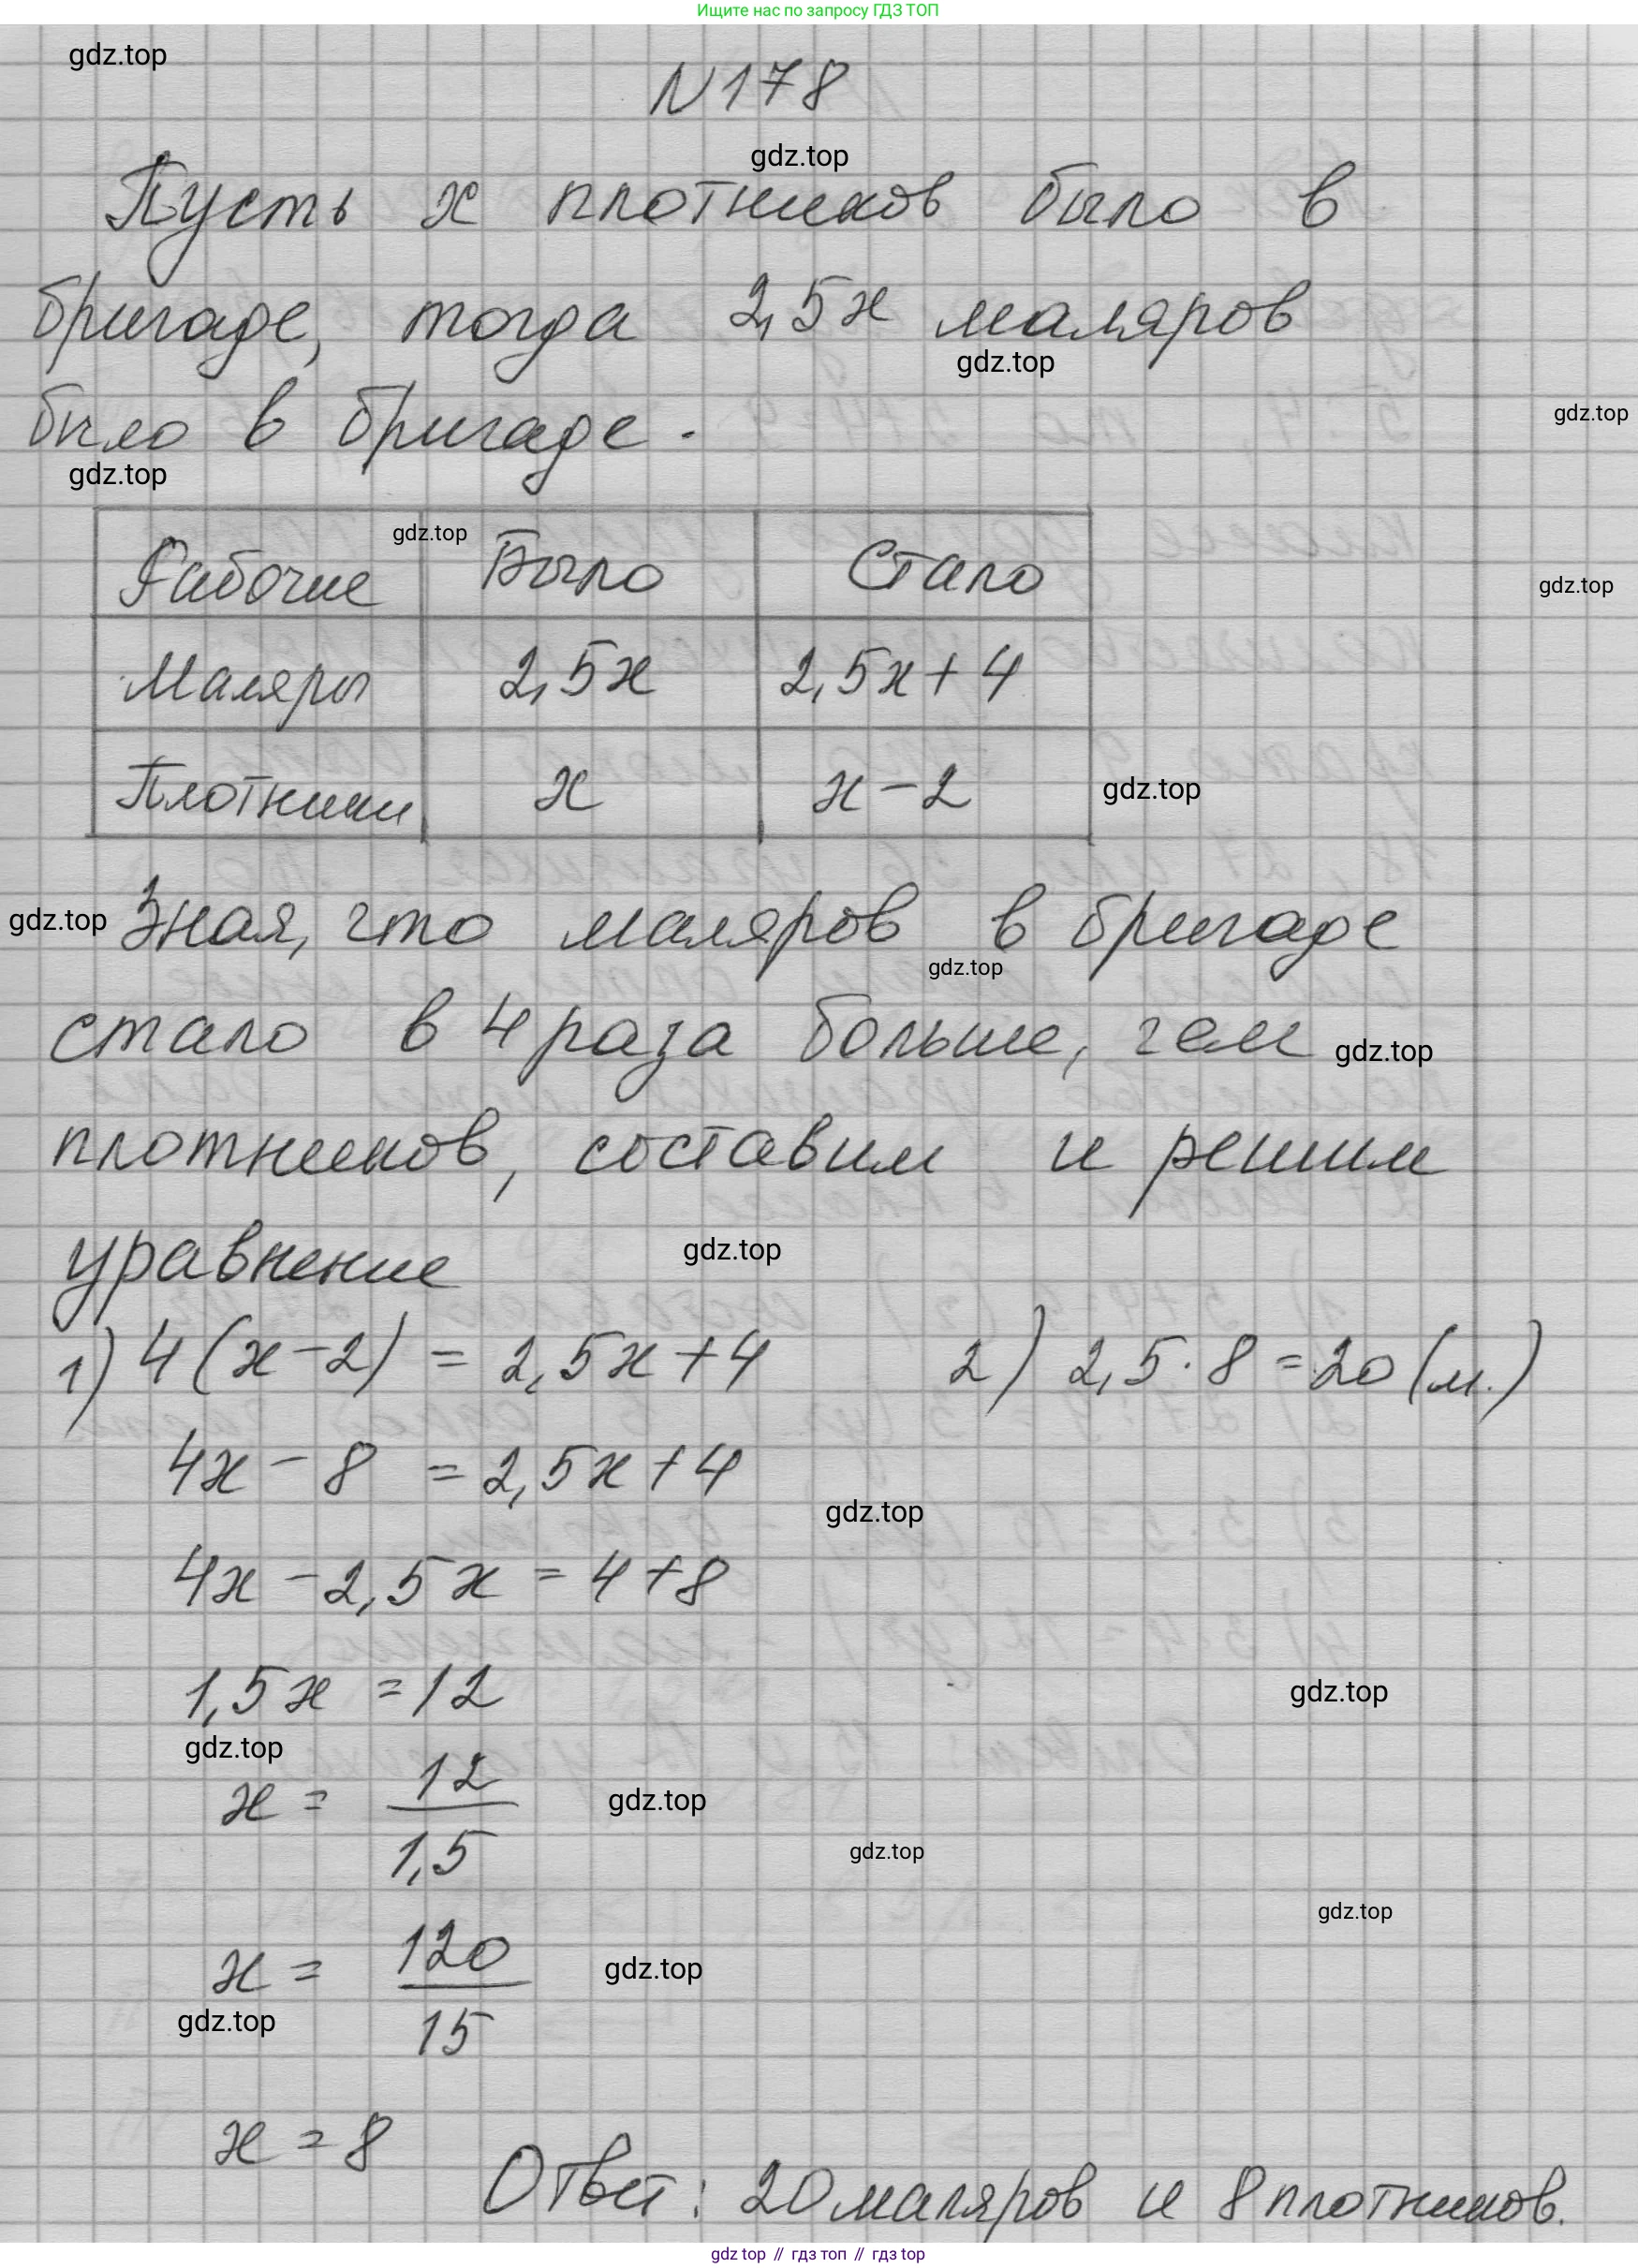 Ищите нас по запросу ГДЗ ТОП
gdz.top
N178
gdz.top
Пусть x плотников было в
бригаде, тогда 2,5x маляров
gdz.top
было в бригаде.
gdz.top
gdz.top
gdz.top
Рабочие Было Стало
gdz.top
Маляры 2,5x 2,5x+4
Плотники x x-2
gdz.top
gdz.top
Зная, что маляров в бригаде
gdz.top
стало в 4 раза больше, чем
gdz.top
плотников, составим и решим
уравнение
gdz.top
1) 4(x-2) = 2,5x+4 2) 2,5·8=20(м.)
4x-8 = 2,5x+4
gdz.top
4x-2,5x = 4+8
1,5x = 12
gdz.top
gdz.top
x = 12/1,5
gdz.top
gdz.top
gdz.top
x = 120/15
gdz.top
gdz.top
x = 8
Ответ: 20 маляров и 8 плотников.
gdz.top // гдз топ // гдз top